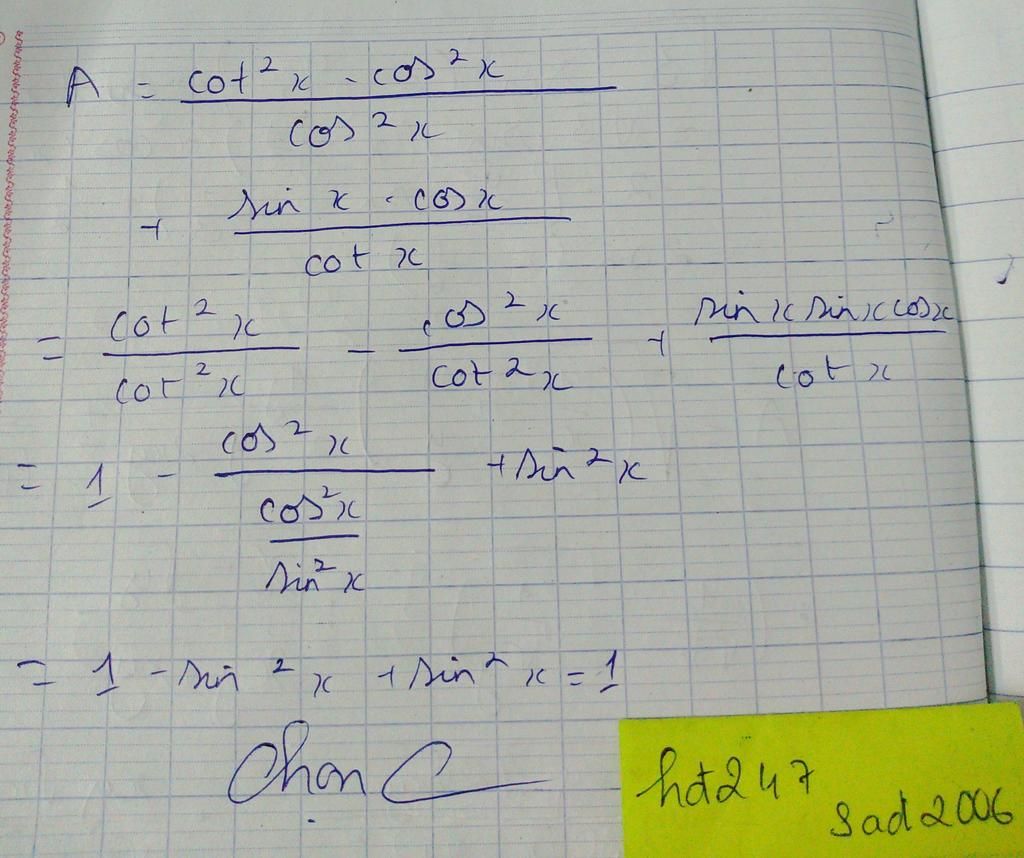 A = cot² x - cos² x
cos² x
+ sin x . cos x
cot x
= cot² x / cot² x - cos² x / cot² x + sin x sin x cos x / cot x
= 1 - cos² x + sin² x
cos² x
sin² x
= 1 - sin² x + sin² x = 1
Chọn C
hdt247
sad2006